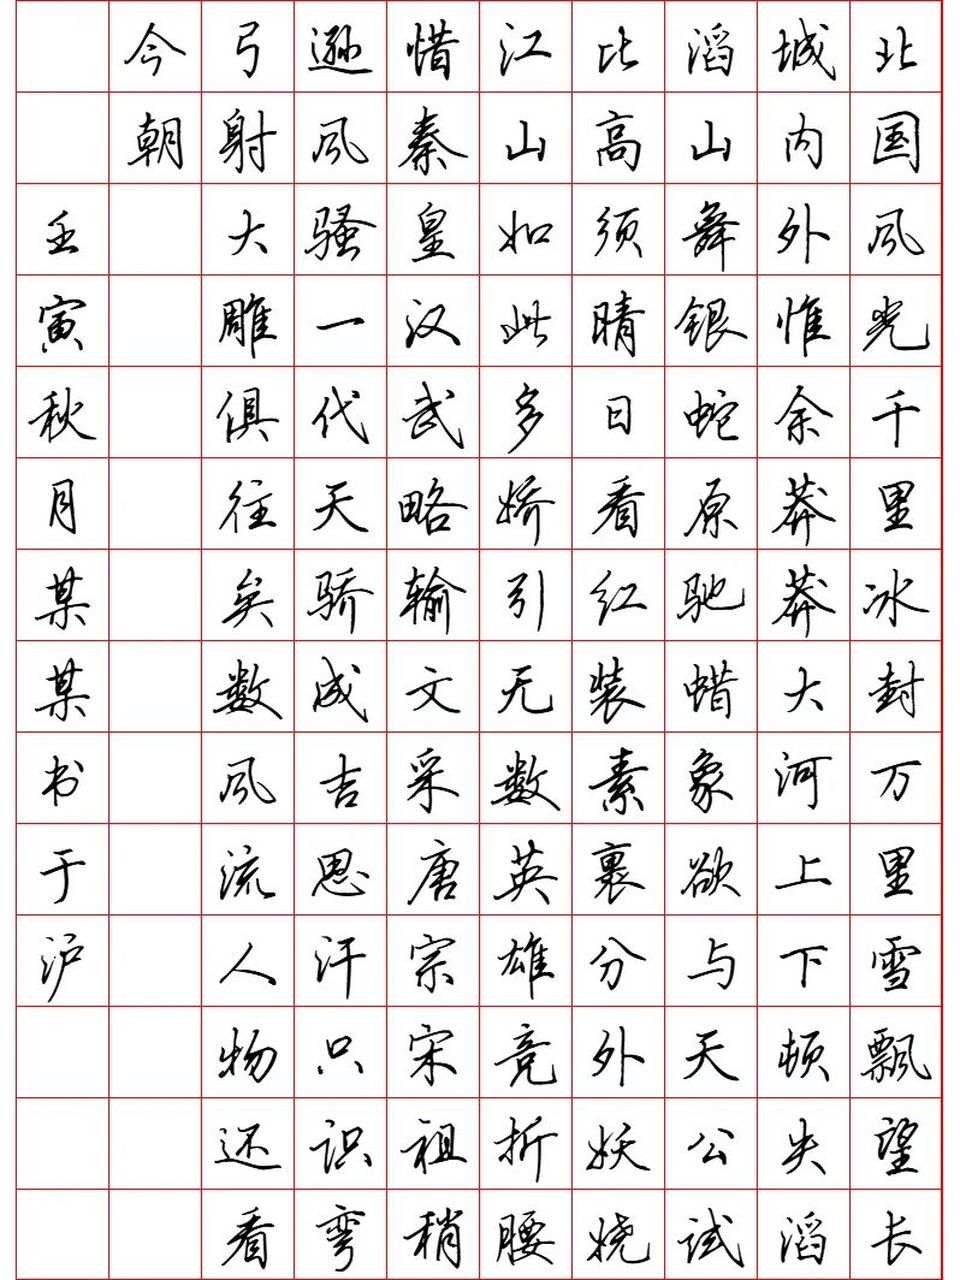 北国风光千里冰封万里雪飘望长
城内外惟余莽莽大河上下顿失滔
滔山舞银蛇原驰蜡象欲与天公试
比高须晴日看红装素裹分外妖娆
江山如此多娇引无数英雄竞折腰
惜秦皇汉武略输文采唐宗宋祖稍
逊风骚一代天骄成吉思汗只识弯
弓射大雕俱往矣数风流人物还看
今朝
壬寅秋月某某书于沪